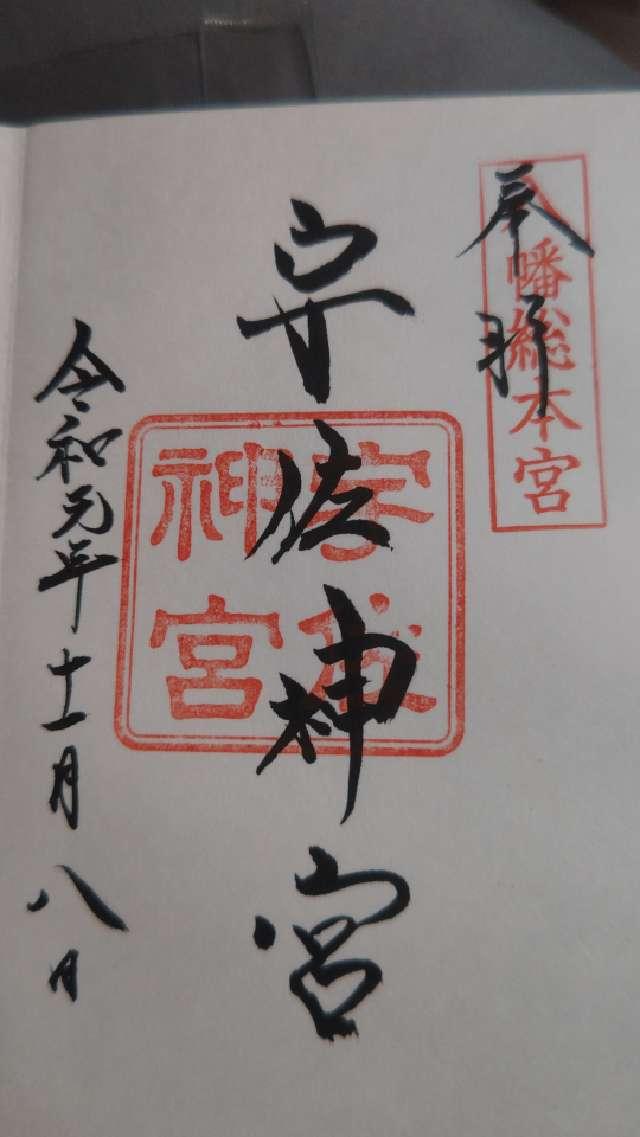 奉拝
八幡総本宮
宇佐神宮
宇佐
神宮
令和元年十一月八日